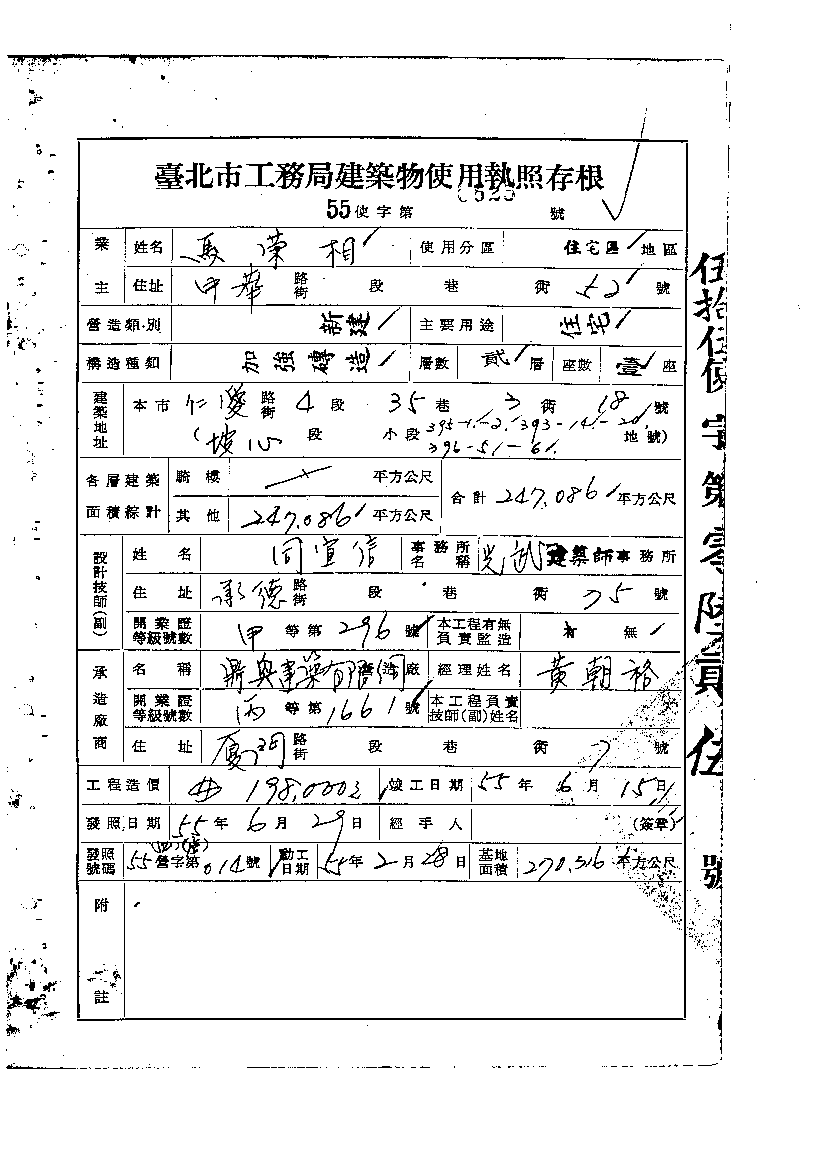 臺北市工務局建築物使用執照存根
55使字第0625號
業主 姓名 馬榮相 使用分區 住宅區 地區
住址 中華 路街 段 巷 衖 52 號
營造類別 新建 主要用途 住宅
構造種類 加強磚造 層數 貳 層 座數 壹 座
建築地址 本市 仁愛 路街 4 段 35 巷 3 衖 18 號
(坡心 段 小段 395-1.-2. 393-14.-20. 396-51-61. 地號)
各層建築面積綜計 騎樓 平方公尺 合計 247.086 平方公尺
其他 247.086 平方公尺
設計技師(副) 姓名 同宣信 事務所名稱 光武建築師事務所
住址 承德 路街 段 巷 衖 75 號
開業證等級號數 甲 等第 296 號 本工程有無負責監造 有 無
承造廠商 名稱 營造廠 經理姓名 黃朝裕
開業證等級號數 丙 等第 1661 號 本工程負責技師(副)姓名
住址 廈門 路街 段 巷 衖 7 號
工程造價 198,000 竣工日期 55年6月15日
發照日期 55年6月29日 經手人 (簽章)
發照號碼 55營字第014號 動工日期 55年2月28日 基地面積 270.516 平方公尺
附註
伍拾伍使字第零陸貳伍號